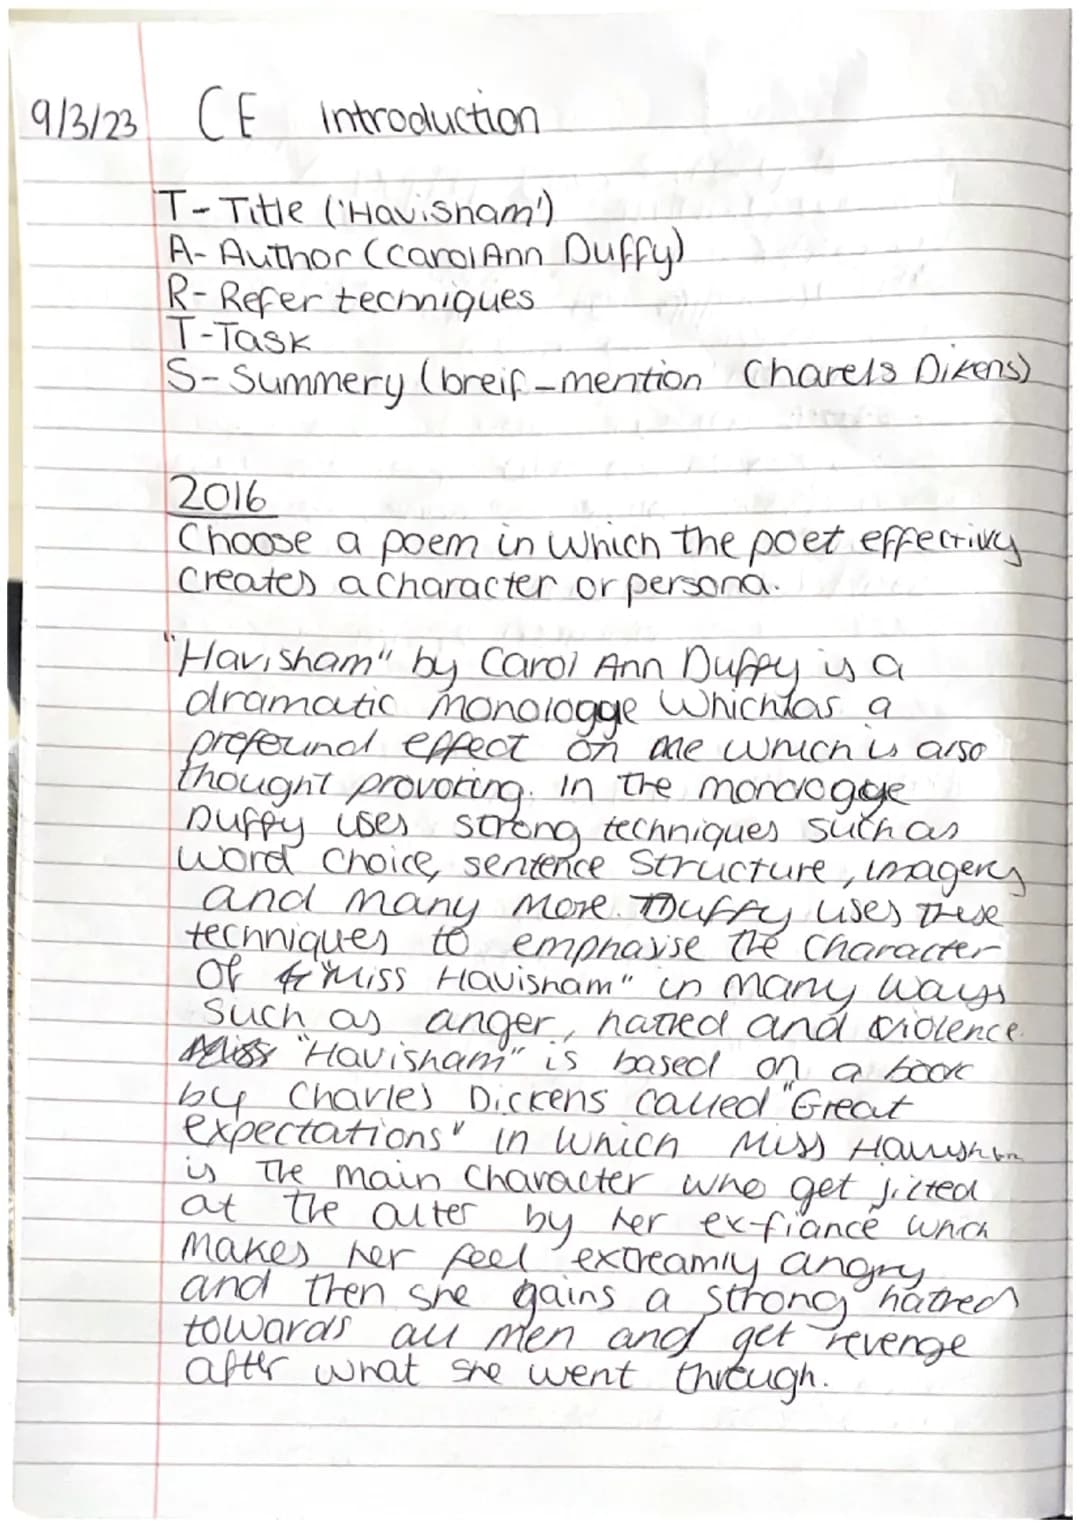 9/3/23 CE Introduction
T- Title ('Havisham')
A- Author (Carol Ann Duffy)
R- Refer techniques
T-Task
S- Summery (breif - mention Charels Dikens)
2016
Choose a poem in which the poet effectivly
creates a character or persona.
"Havisham" by Carol Ann Duffy is a
dramatic monologge which has a
profound effect on me which is also
thought provoking. In the monologge
Duffy uses strong techniques such as
word choice, sentence structure, imagery
and many more. Duffy uses these
techniques to emphasise the character
of "Miss Havisham" in many ways
such as anger, hatred and violence.
"Havisham" is based on a book
by Charles Dickens called "Great
expectations" in which Miss Havisham
is the main character who get jilted
at the alter by her ex-fiancé which
makes her feel extreamly angry
and then she gains a strong hatred
towards all men and get revenge
after what she went through.